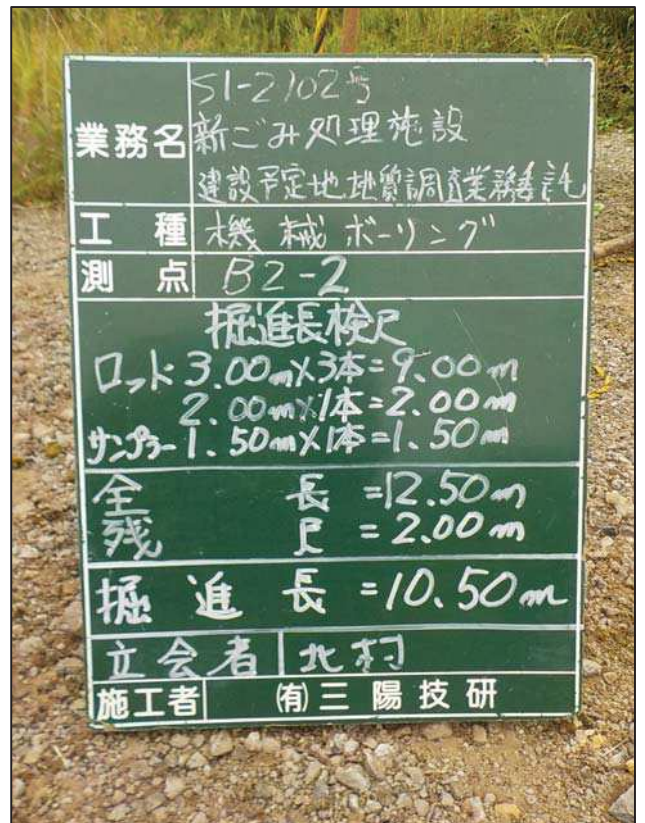 S1-2102号
業務名 新ごみ処理施設
建設予定地地質調査業務委託
工種 機械ボーリング
測点 B2-2
掘進長検尺
ロット 3.00m×3本=9.00m
2.00m×1本=2.00m
サンプラー1.50m×1本=1.50m
全長=12.50m
残尺=2.00m
掘進長=10.50m
立会者 北村
施工者 (有)三陽技研